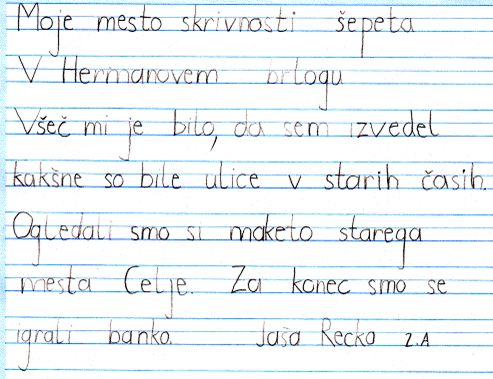 Moje mesto skrivnosti šepeta
V Hermanovem brlogu
Všeč mi je bilo, da sem izvedel
kakšne so bile ulice v starih časih.
Ogledali smo si maketo starega
mesta Celje. Za konec smo se
igrali banko. Jaša Recko 2.A